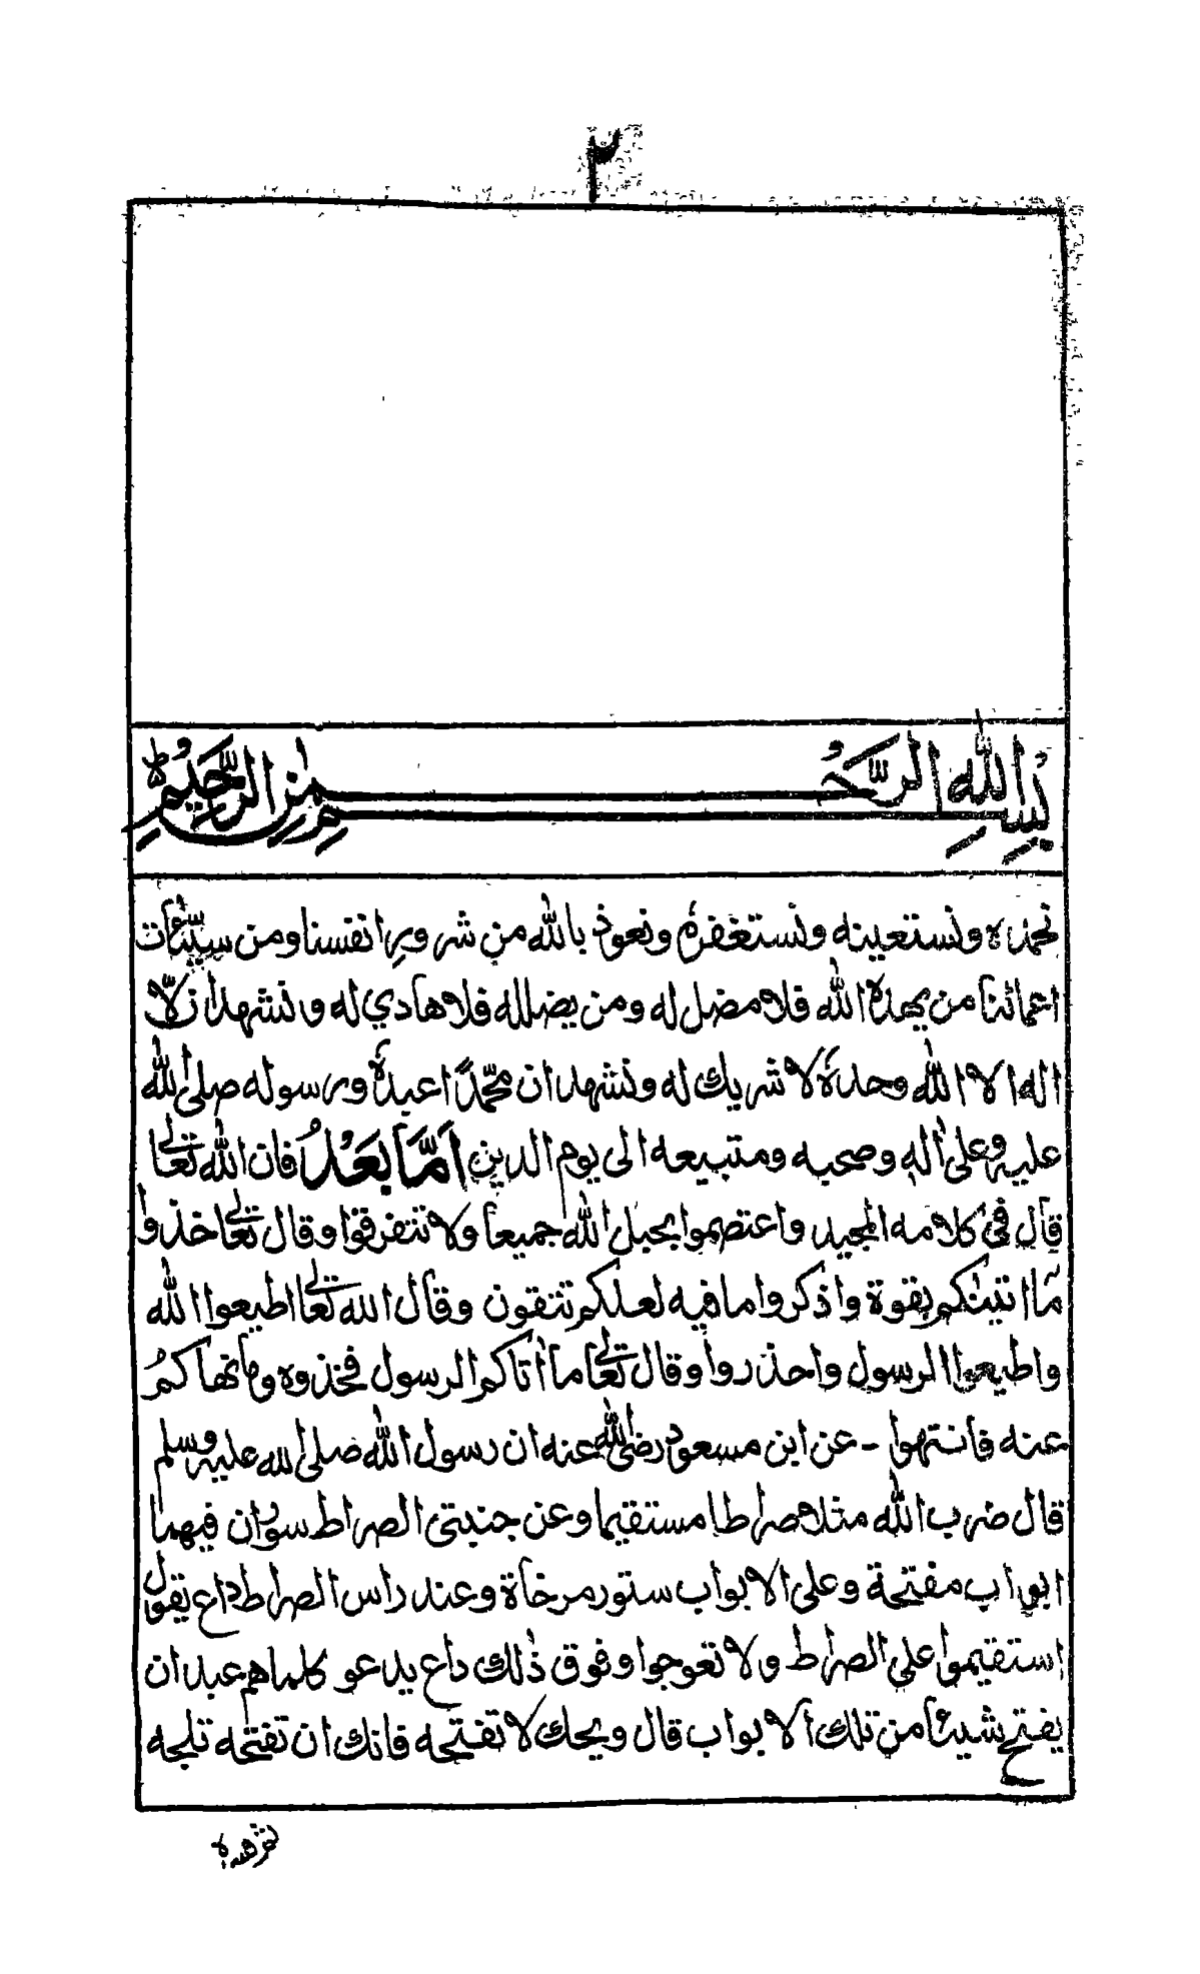 ٢
بِسْمِ اللهِ الرَّحْمٰنِ الرَّحِيْمِ
نحمده ونستعينه ونستغفرهٗ ونعوذ بالله من شرورِ انفسنا ومن سيِّئات
اعمالنا من يهدهِ الله فلا مضل له ومن يضلله فلا هادي له ونشهد ان لّا
اله الا الله وحدهٗ لا شريك له ونشهد ان محمّدًا عبدهٗ ورسوله صلى الله
عليه وعلىٰ اٰلهٖ وصحبه ومتبيعه الى يوم الدين اَمَّا بَعْدُ فان الله تعالىٰ
قال فى كلامه المجيد واعتصموا بحبل الله جميعا ولا تتفرقوا وقال تعالىٰ خذوا
ما اٰتينٰكم بقوة واذكروا ما فيه لعلكم تتقون وقال الله تعالىٰ اطيعوا الله
واطيعوا الرسول واحذروا وقال تعالىٰ ما اٰتاكم الرسول فخذوه وما نهاكمُ
عنه فانتهوا - عن ابن مسعود رضى الله عنه ان رسول الله صلى الله عليه وسلم
قال ضرب الله مثلا صراطا مستقيما وعن جنبتى الصراط سوران فيهما
ابواب مفتحة وعلى الابواب ستور مرخاة وعند راس الصراط داع يقول
استقيموا على الصراط ولا تعوجوا وفوق ذٰلك داع يدعو كلما هم عبد ان
يفتح شيئا من تلك الابواب قال ويحك لا تفتحه فانك ان تفتحه تلجه